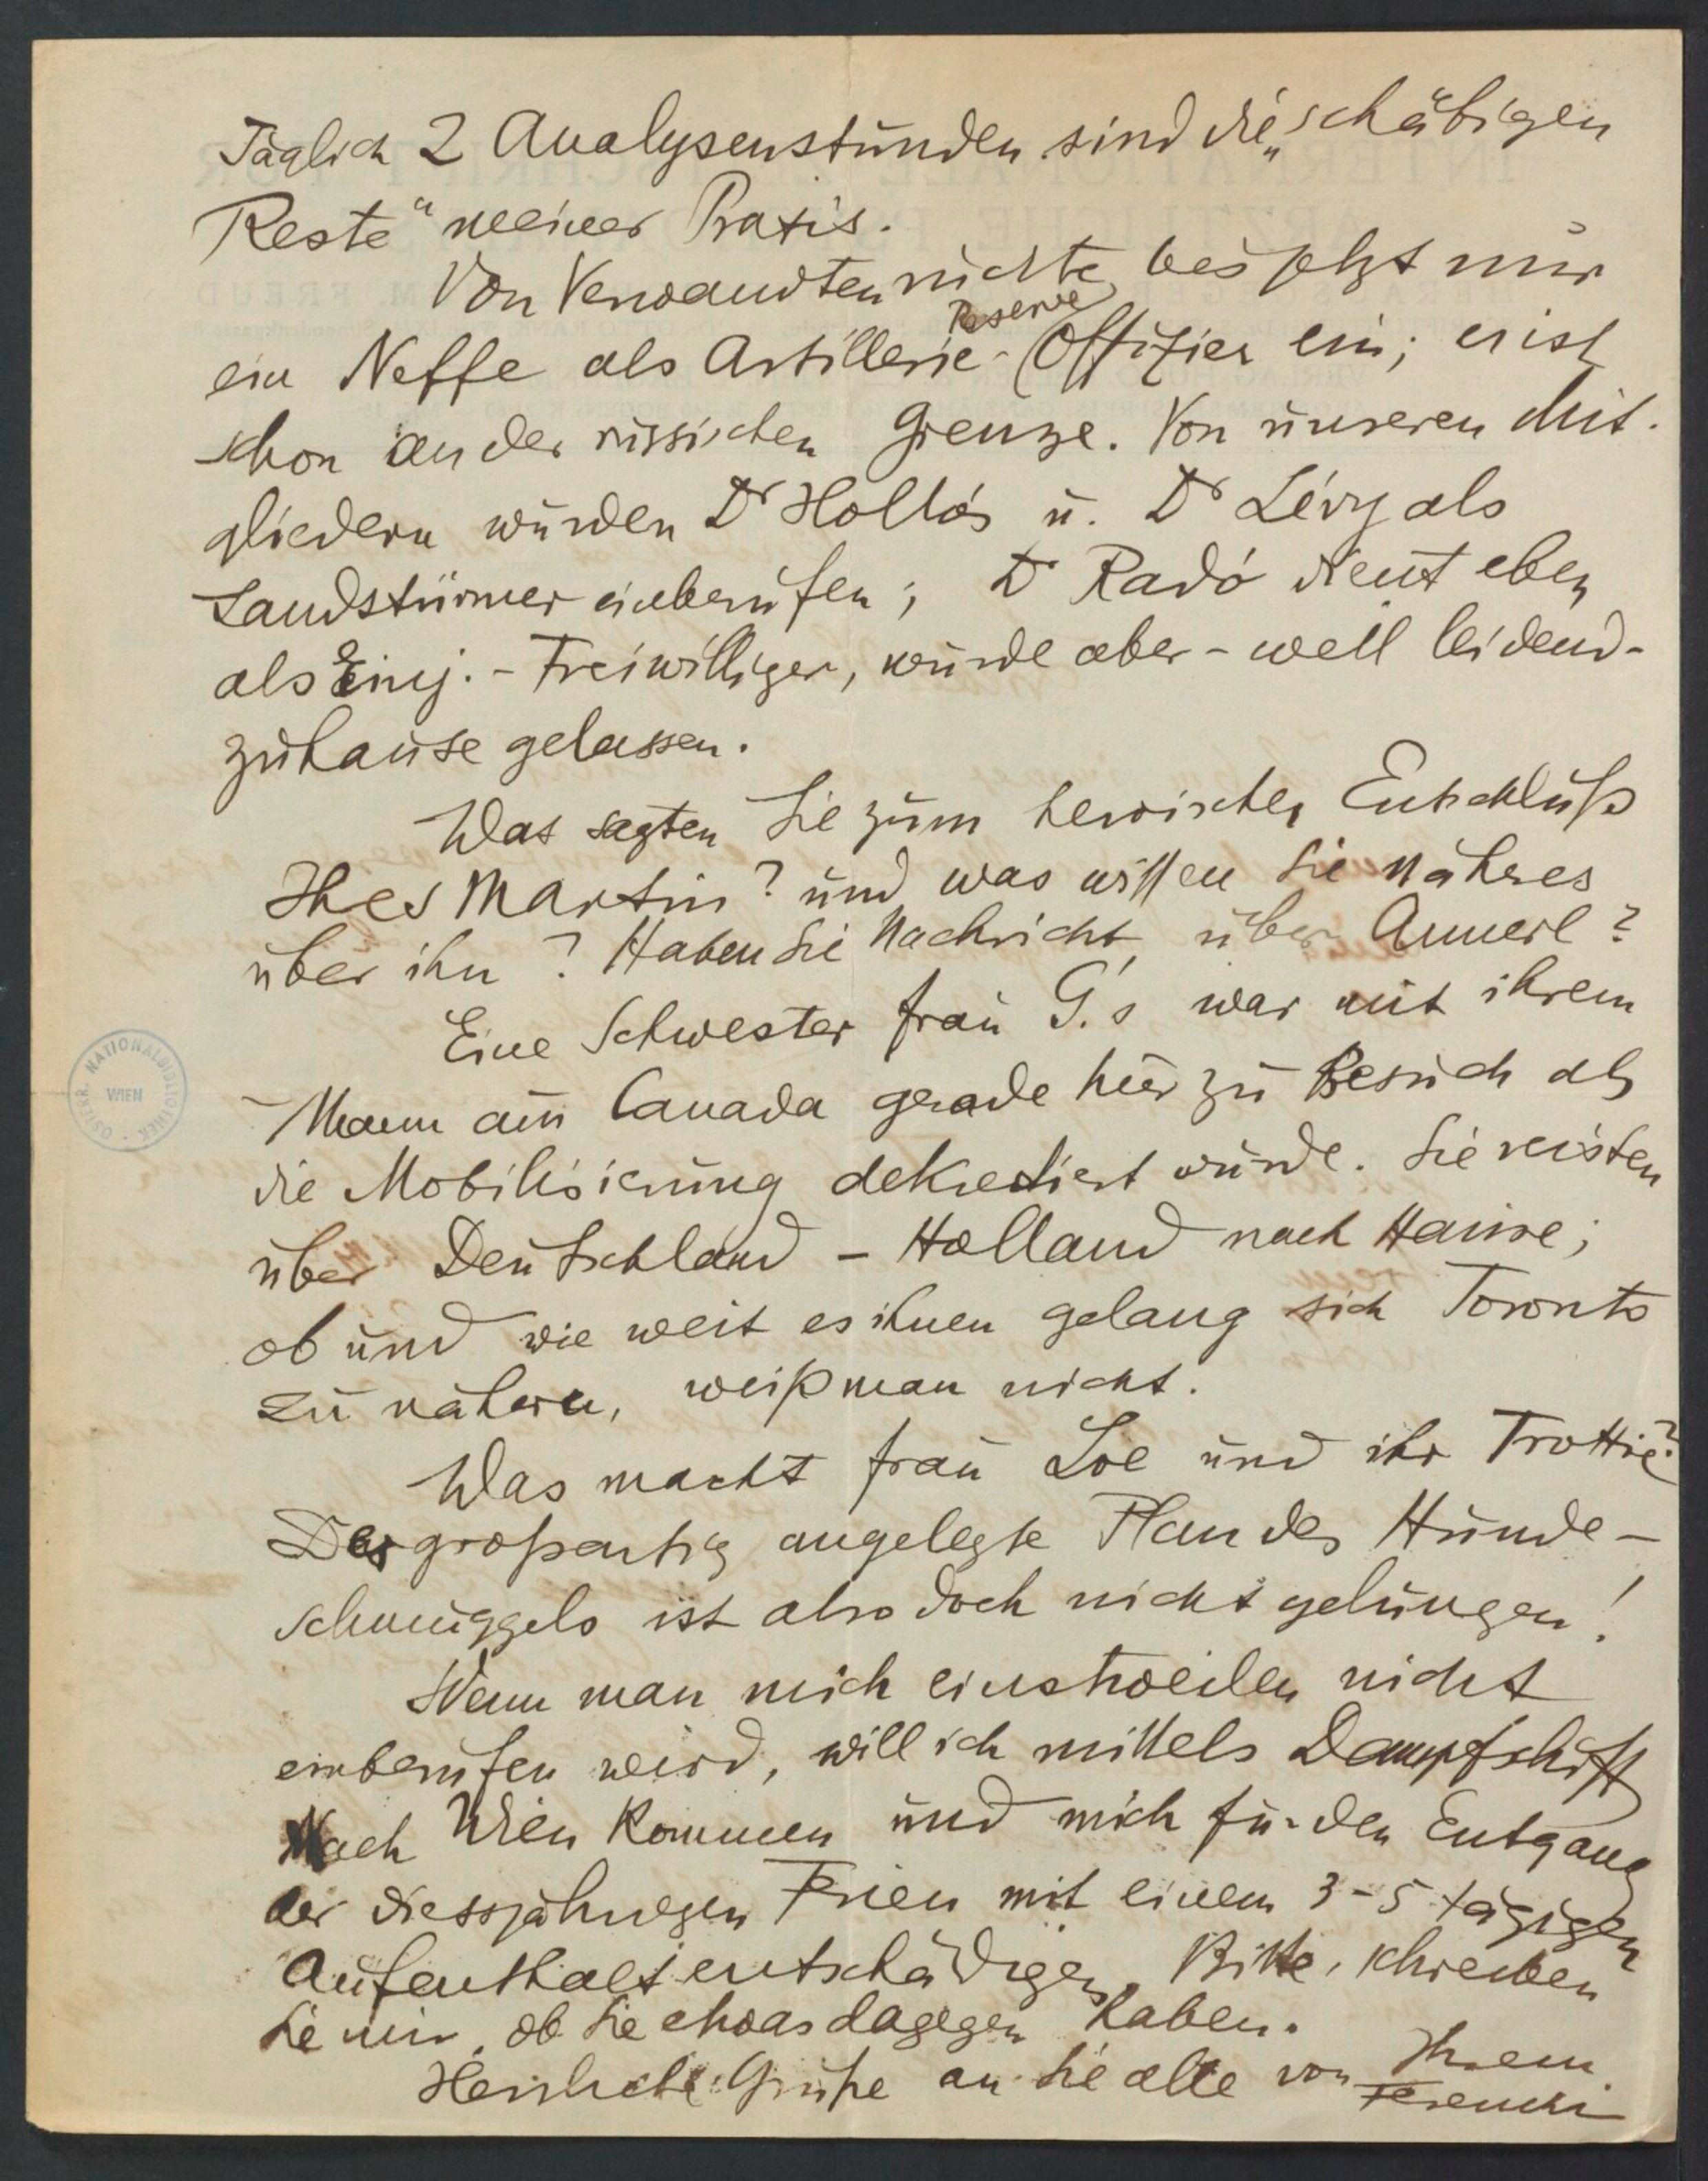 Täglich 2 Analysenstunden sind die „schäbigen
Reste“ meiner Praxis.
Von Verwandten rückte bis jetzt nur
ein Neffe als Artillerie-Reserve Offizier ein; er ist
schon an der russischen Grenze. Von unseren Mit-
gliedern wurden Dr Hollós u. Dr Lévy als
Landstürmer einberufen; Dr Radó dient eben
als Einj.-Freiwilliger, wurde aber - weil leidend -
zuhause gelassen.
Was sagten Sie zum heroischen Entschluß
Ihres Martin? und was wissen Sie näheres
über ihn? Haben Sie Nachricht über Annerl?
Eine Schwester Frau G.'s war mit ihrem
Mann aus Canada gerade hier zu Besuch als
die Mobilisierung dekretiert wurde. Sie reisten
über Deutschland - Holland nach Hause;
ob und wie weit es ihnen gelang sich Toronto
zu nähern, weiß man nicht.
Was macht Frau Loe und ihr Trottie?
Der großartig angelegte Plan des Hunde-
schmuggels ist also doch nicht gelungen!
Wenn man mich einstweilen nicht
einberufen wird, will ich mittels Dampfschiff
Nach Wien kommen und mich für den Entgang
der diessjährigen Ferien mit einem 3-5 tägigen
Aufenthalt entschädigen. Bitte, schreiben
Sie mir, ob Sie etwas dagegen haben.
Herzliche Grüße an Sie alle von Ihrem
Ferenczi
ÖSTERR. NATIONALBIBLIOTHEK
WIEN